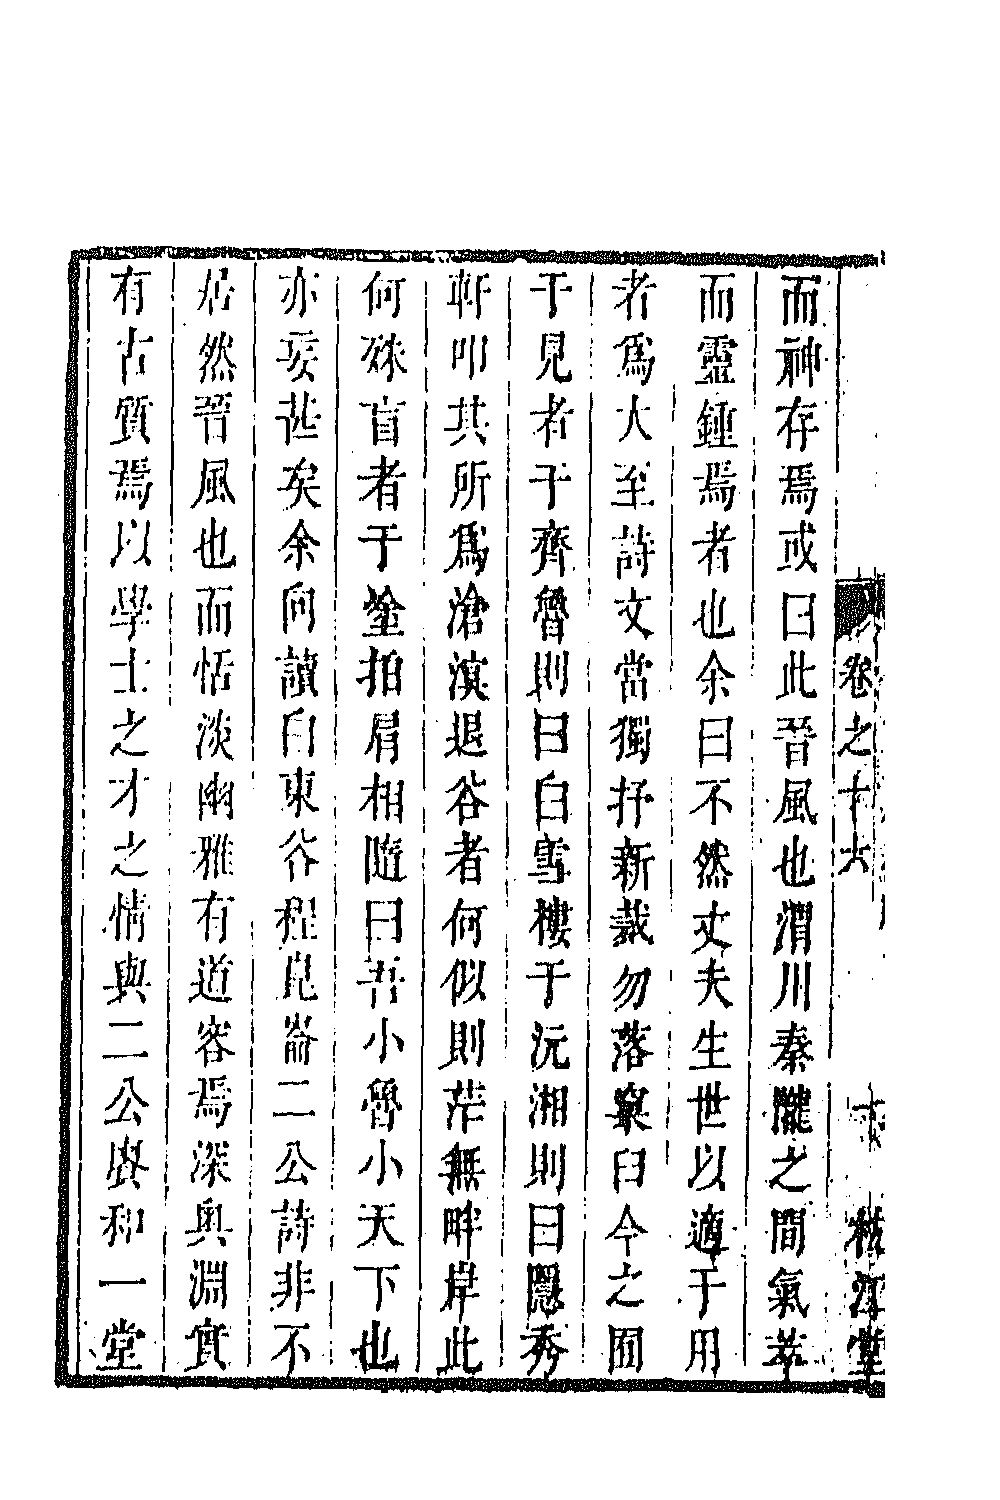 而神存焉或曰此晉風也渭川秦隴之間氣萃
而靈鍾焉者也余曰不然丈夫生世以適于用
者爲大至詩文當獨抒新裁勿落窠臼今之囿
于見者于齊魯則曰白雪樓于沅湘則曰隱秀
軒叩其所爲滄溟退谷者何似則茫無畔岸此
何殊盲者于塗拍肩相隨曰吾小魯小天下也
亦妄甚矣余向讀白東谷程崑崙二公詩非不
居然晉風也而恬淡幽雅有道容焉深奥淵實
有古質焉以學士之才之情與二公賡和一堂
卷之十六